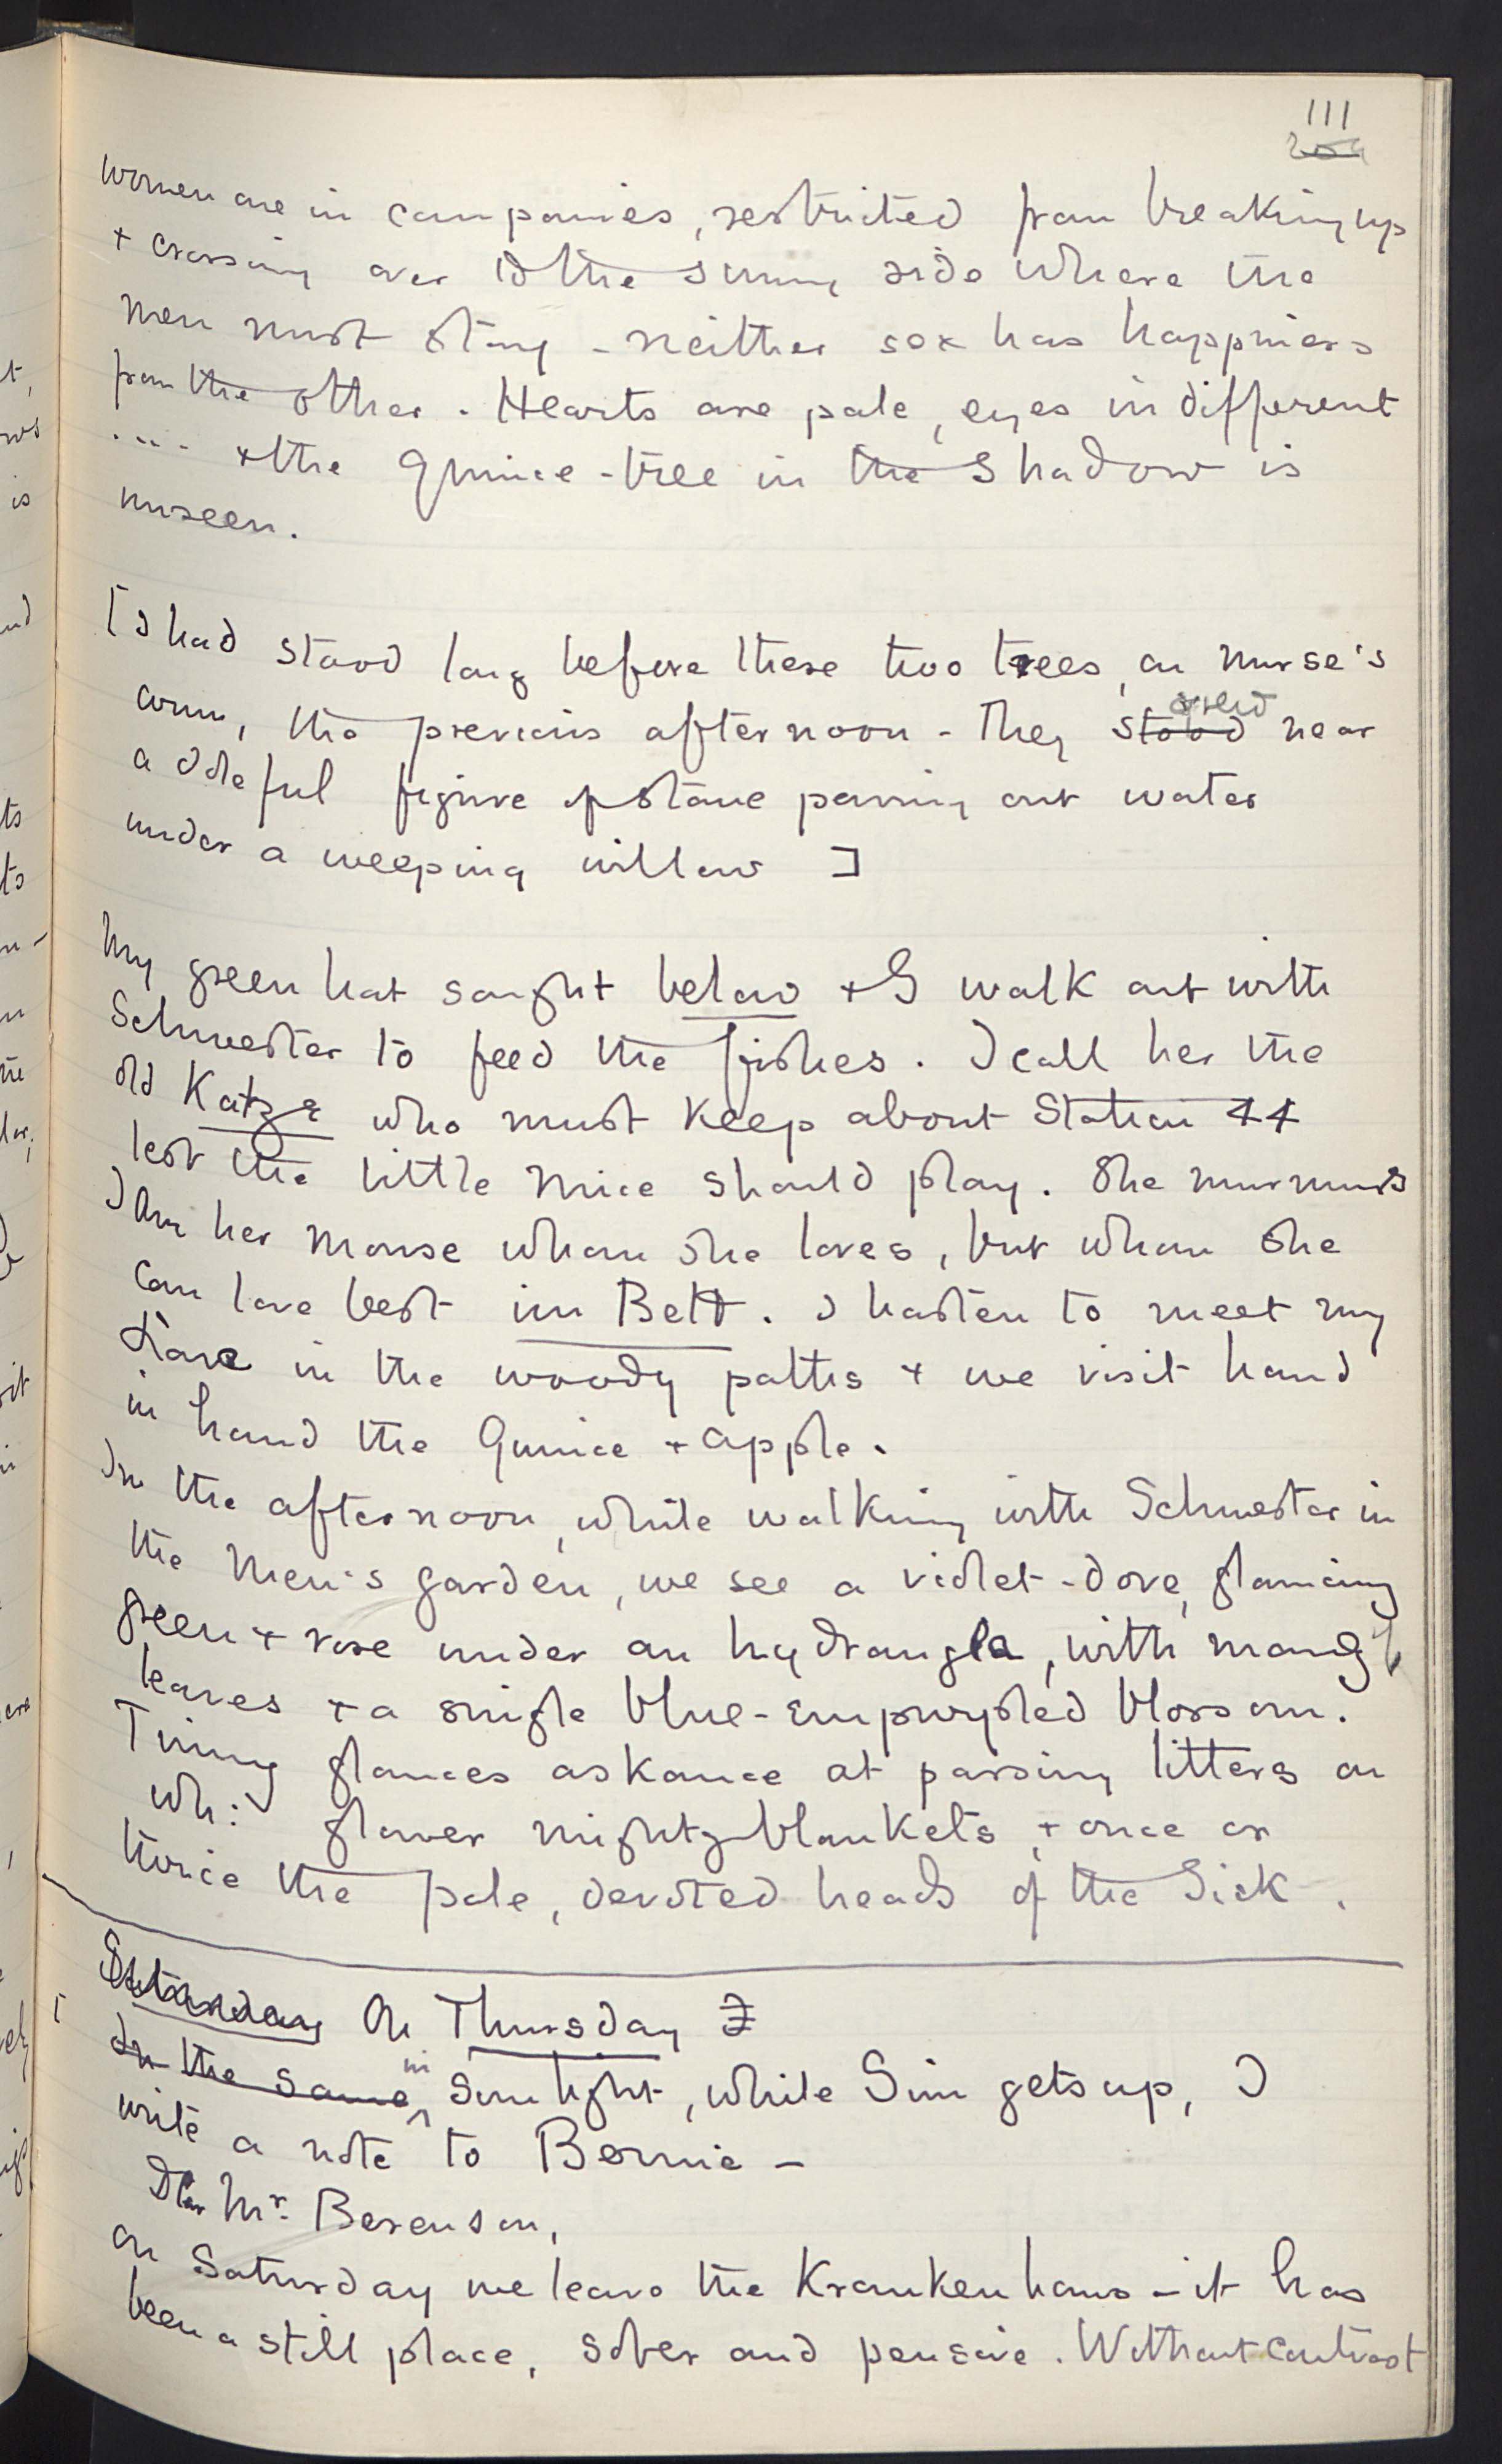 111
women are in companies, restricted from breaking up
+ crossing over to the sunny side where the
men must stay - neither sex has happiness
from the other. Hearts are pale, eyes indifferent
.... + the Quince-tree in the shadow is
unseen.
[I had stood long before these two trees, on nurse's
arm, the previous afternoon - They stood grew near
a doleful figure of stone pouring out water
under a weeping willow ]
My green hat sought below + I walk out with
Schwester to feed the fishes. I call her the
old Katze who must keep about Station 44
lest the little mice should play. She murmurs
I am her mouse whom she loves, but whom she
can love best im Bett. I hasten to meet my
Love in the woody paths + we visit hand
in hand the Quince + apple.
In the afternoon, while walking with Schwester in
the men's garden, we see a violet-dove, glancing
green + rose under an hydrangea, with
leaves + a single blue-empurpled blossom.
Timing glances askance at passing litters on
wh: glower mighty blankets, + once or
twice the pale, devoted heads of the Sick.
Saturday On Thursday
In the same in sunlight, while Sim gets up, I
write a note to Bernie -
Dear Mr. Berenson,
On Saturday we leave the Krankenhaus - it has
been a still place, sober and pensive. Without contrast